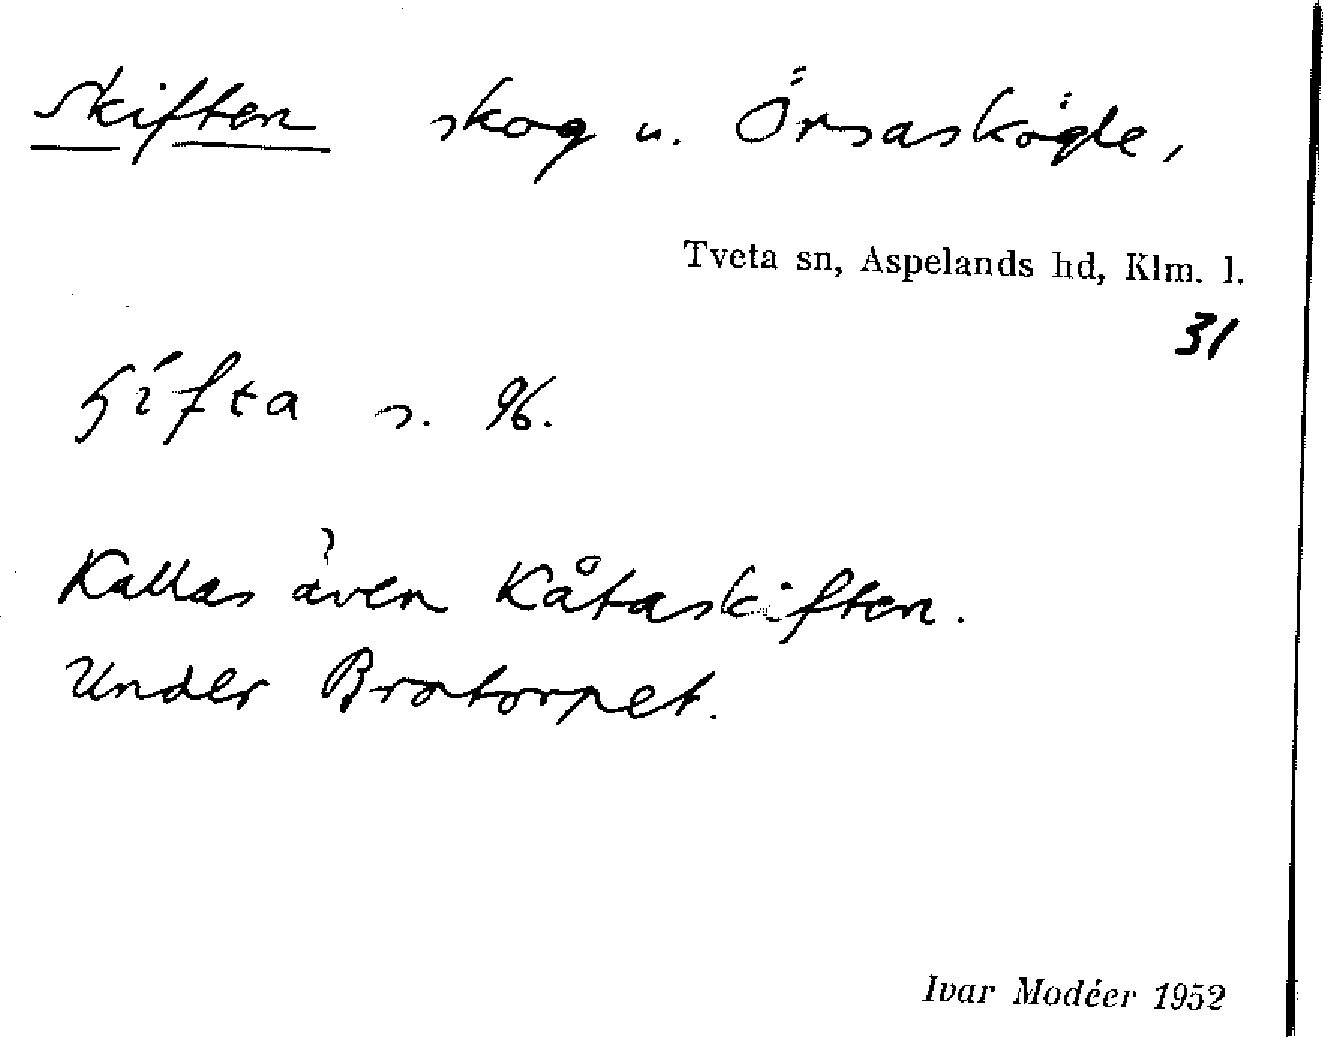 Skiften skog u. Örsaskögle,
Tveta sn, Aspelands hd, Klm. l.
31
ɧífta n. %.
Kallas även Kåtaskiften.
Under Brotorpet.
Ivar Modéer 1952